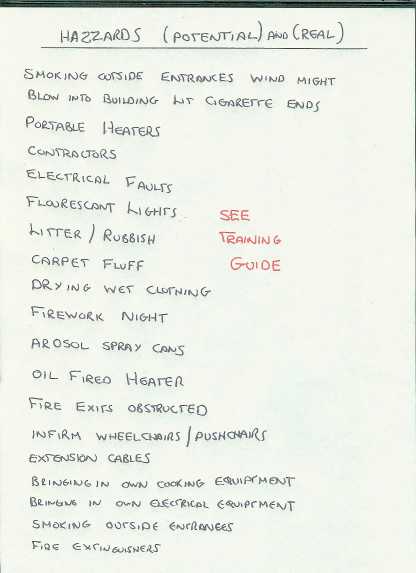 HAZZARDS (POTENTIAL) AND (REAL)
SMOKING OUTSIDE ENTRANCES WIND MIGHT
BLOW INTO BUILDING LIT CIGARETTE ENDS
PORTABLE HEATERS
CONTRACTORS
ELECTRICAL FAULTS
FLOURESCANT LIGHTS
SEE
LITTER / RUBBISH
TRAINING
CARPET FLUFF
GUIDE
DRYING WET CLOTHING
FIREWORK NIGHT
AROSOL SPRAY CANS
OIL FIRED HEATER
FIRE EXITS OBSTRUCTED
INFIRM WHEELCHAIRS / PUSHCHAIRS
EXTENSION CABLES
BRINGING IN OWN COOKING EQUIPTMENT
BRINGING IN OWN ELECTRICAL EQUIPTMENT
SMOKING OUTSIDE ENTRANCES
FIRE EXTINGUISHERS